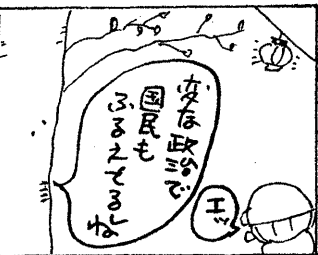 変な政治で
国民も
ふるえてるね
エッ